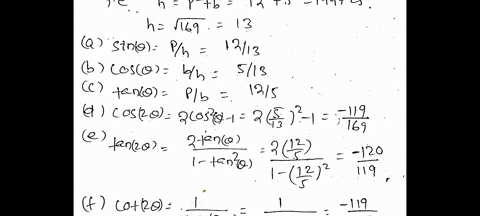 h = √169 = 13
(a) sin(θ) = P/h = 12/13
(b) cos(θ) = b/h = 5/13
(c) tan(θ) = P/b = 12/5
(d) cos(2θ) = 2cos²θ-1 = 2(5/13)²-1 = -119/169
(e) tan(2θ) = 2tan(θ)/1-tan²θ = 2(12/5)/1-(12/5)² = -120/119
(f) cot(2θ) = 1 = 1 = -119